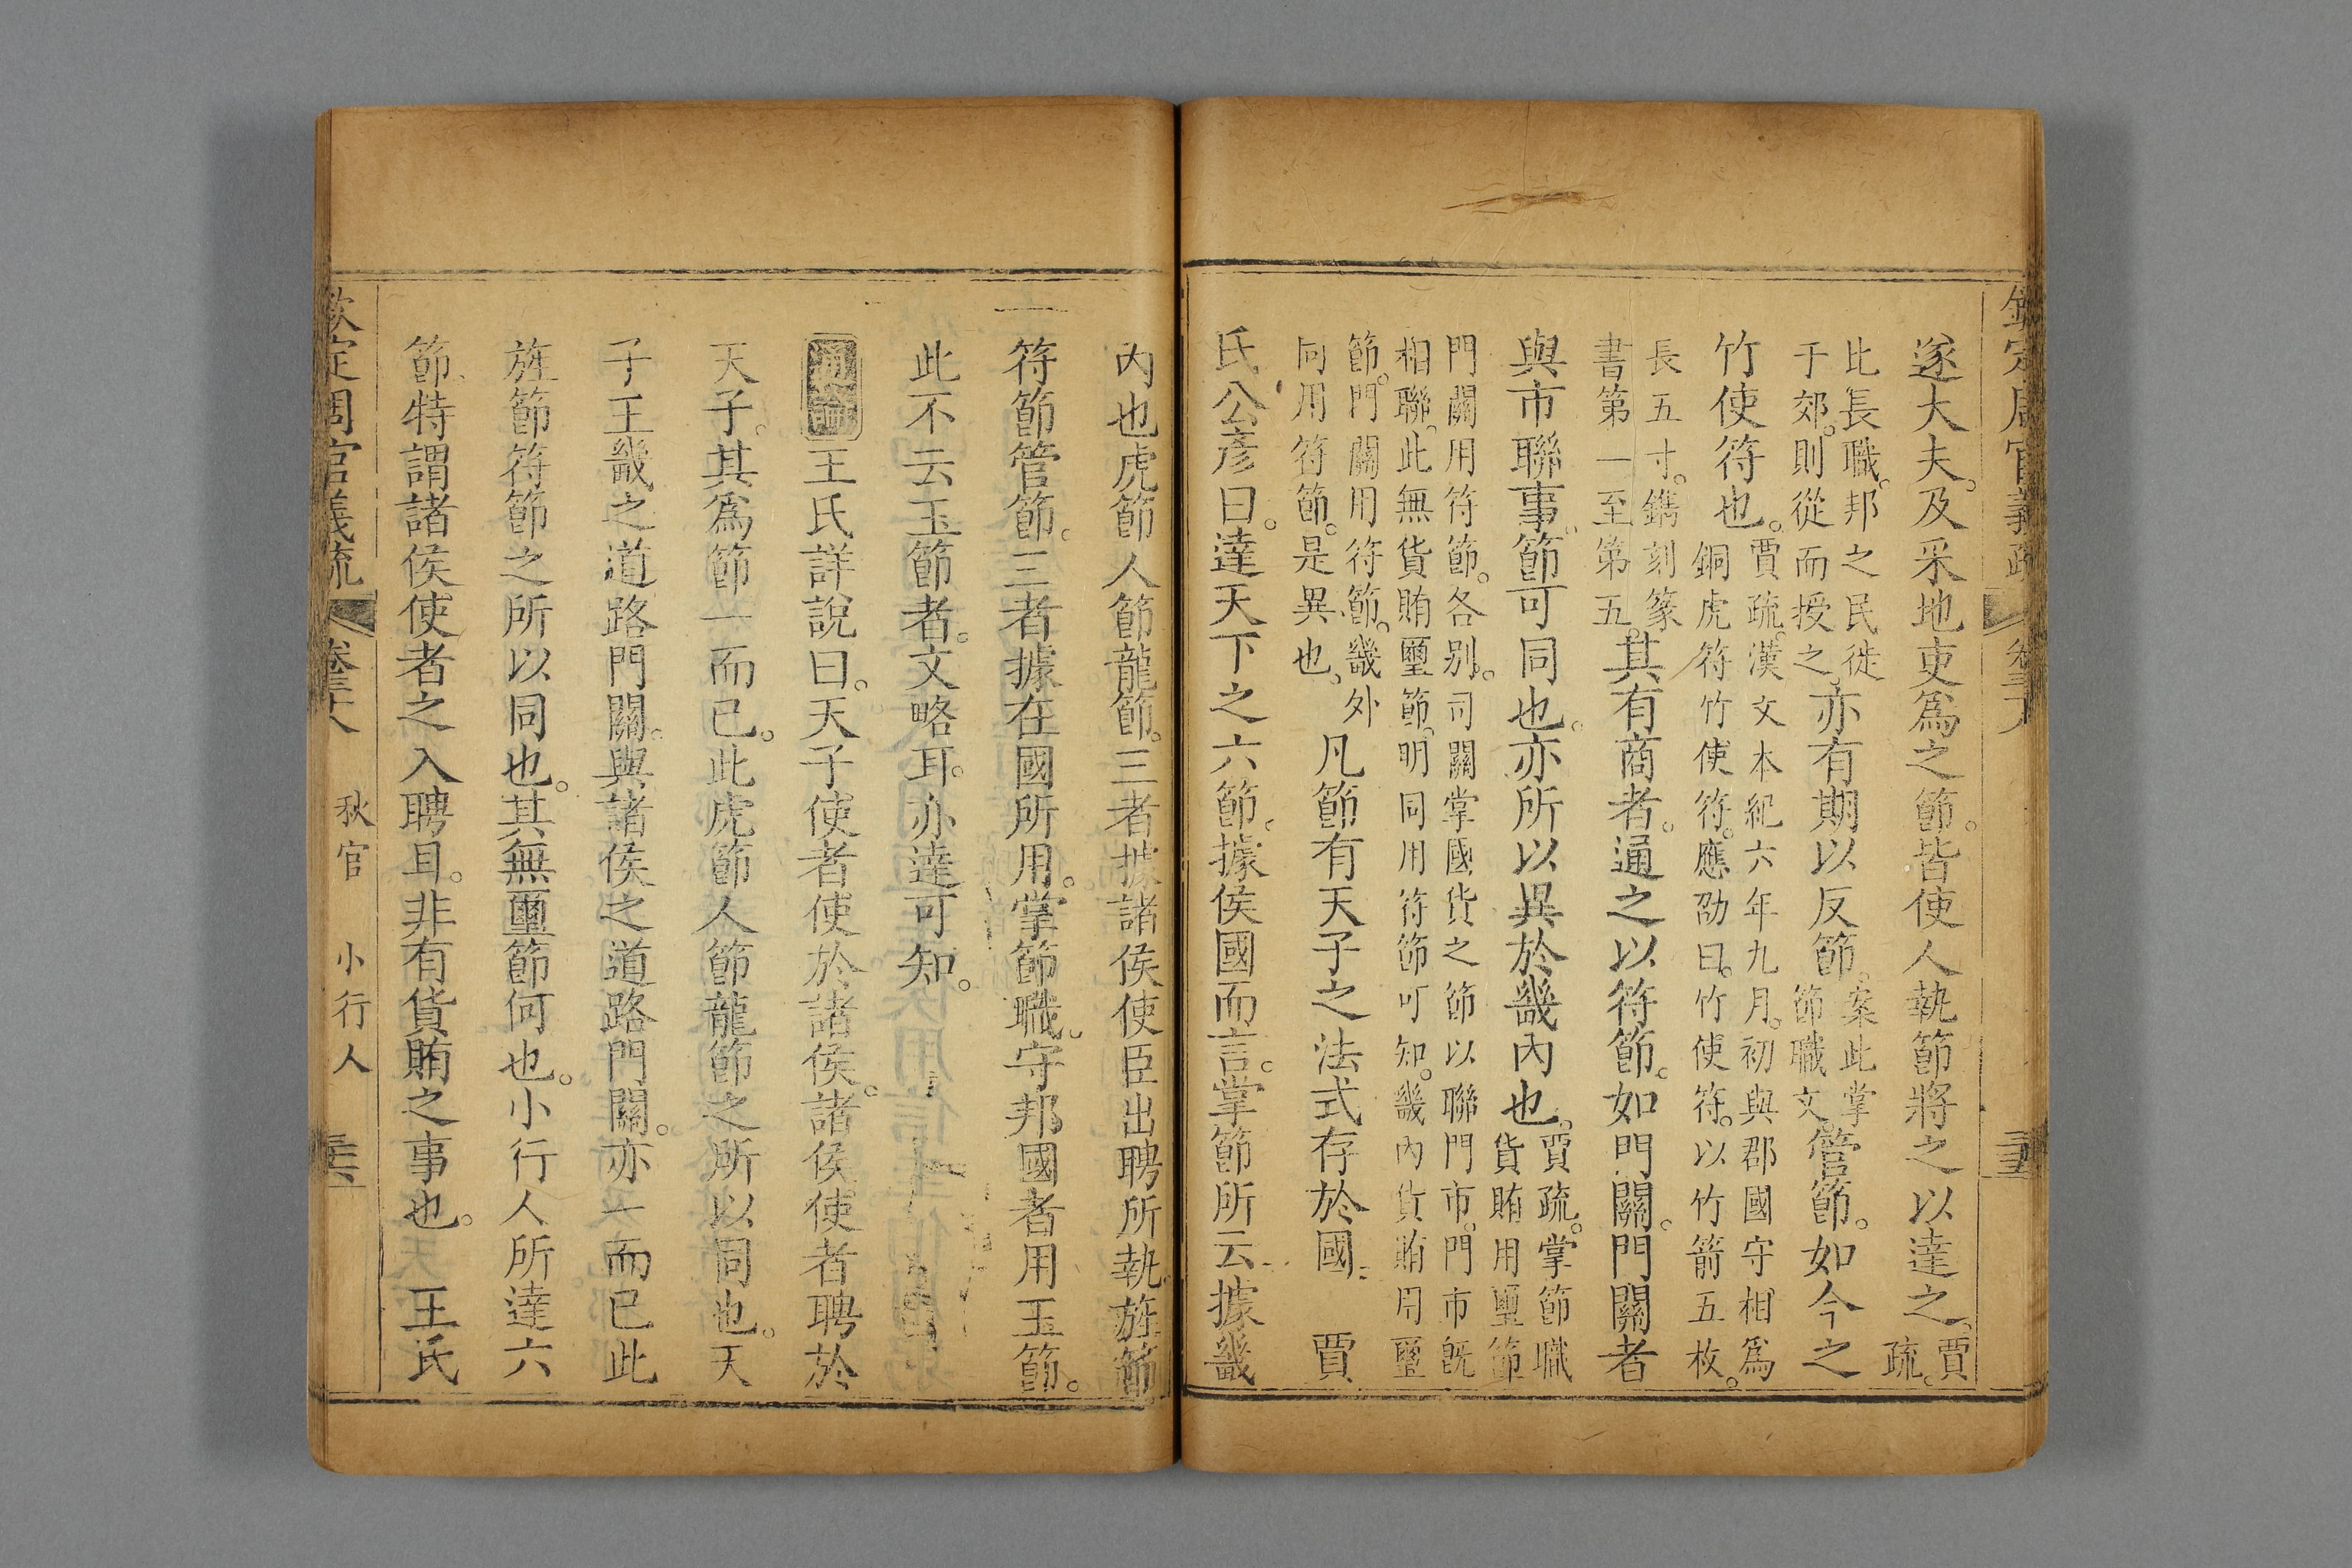 欽定周官義疏 卷三十八 三十五
遂大夫。及采地吏爲之節。皆使人執節將之以達之。賈
疏。
比長職。邦之民徙
于郊。則從而授之。亦有期以反節。案此掌
節職文。管節。如今之
竹使符也。賈疏。漢文本紀六年九月。初與郡國守相爲
銅虎符竹使符。應劭曰。竹使符。以竹箭五枚。
長五寸。鐫刻篆
書第一至第五。其有商者。通之以符節。如門關。門關者
與市聯事。節可同也。亦所以異於畿內也。賈疏。掌節職
貨賄用璽節
門關用符節。各別。司關掌國貨之節以聯門市。門市既
相聯。此無貨賄璽節。明同用符節可知。畿內貨賄用璽
節。門關用符節。畿外
同用符節。是異也。凡節有天子之法式存於國。 賈
氏公彥曰。達天下之六節。據侯國而言。掌節所云據畿
內也虎節人節龍節。三者據諸侯使臣出聘所執。旌節
符節管節。三者據在國所用。掌節職。守邦國者用玉節。
此不云玉節者。文略耳。亦達可知。
通論 王氏詳說曰。天子使者使於諸侯。諸侯使者聘於
天子。其爲節一而已。此虎節人節龍節之所以同也。天
子王畿之道路門關。與諸侯之道路門關。亦一而已此
旌節符節之所以同也。其無璽節何也。小行人所達六
節、特謂諸侯使者之入聘耳。非有貨賄之事也。 王氏
欽定周官義疏 卷三十八 秋官 小行人 三十六